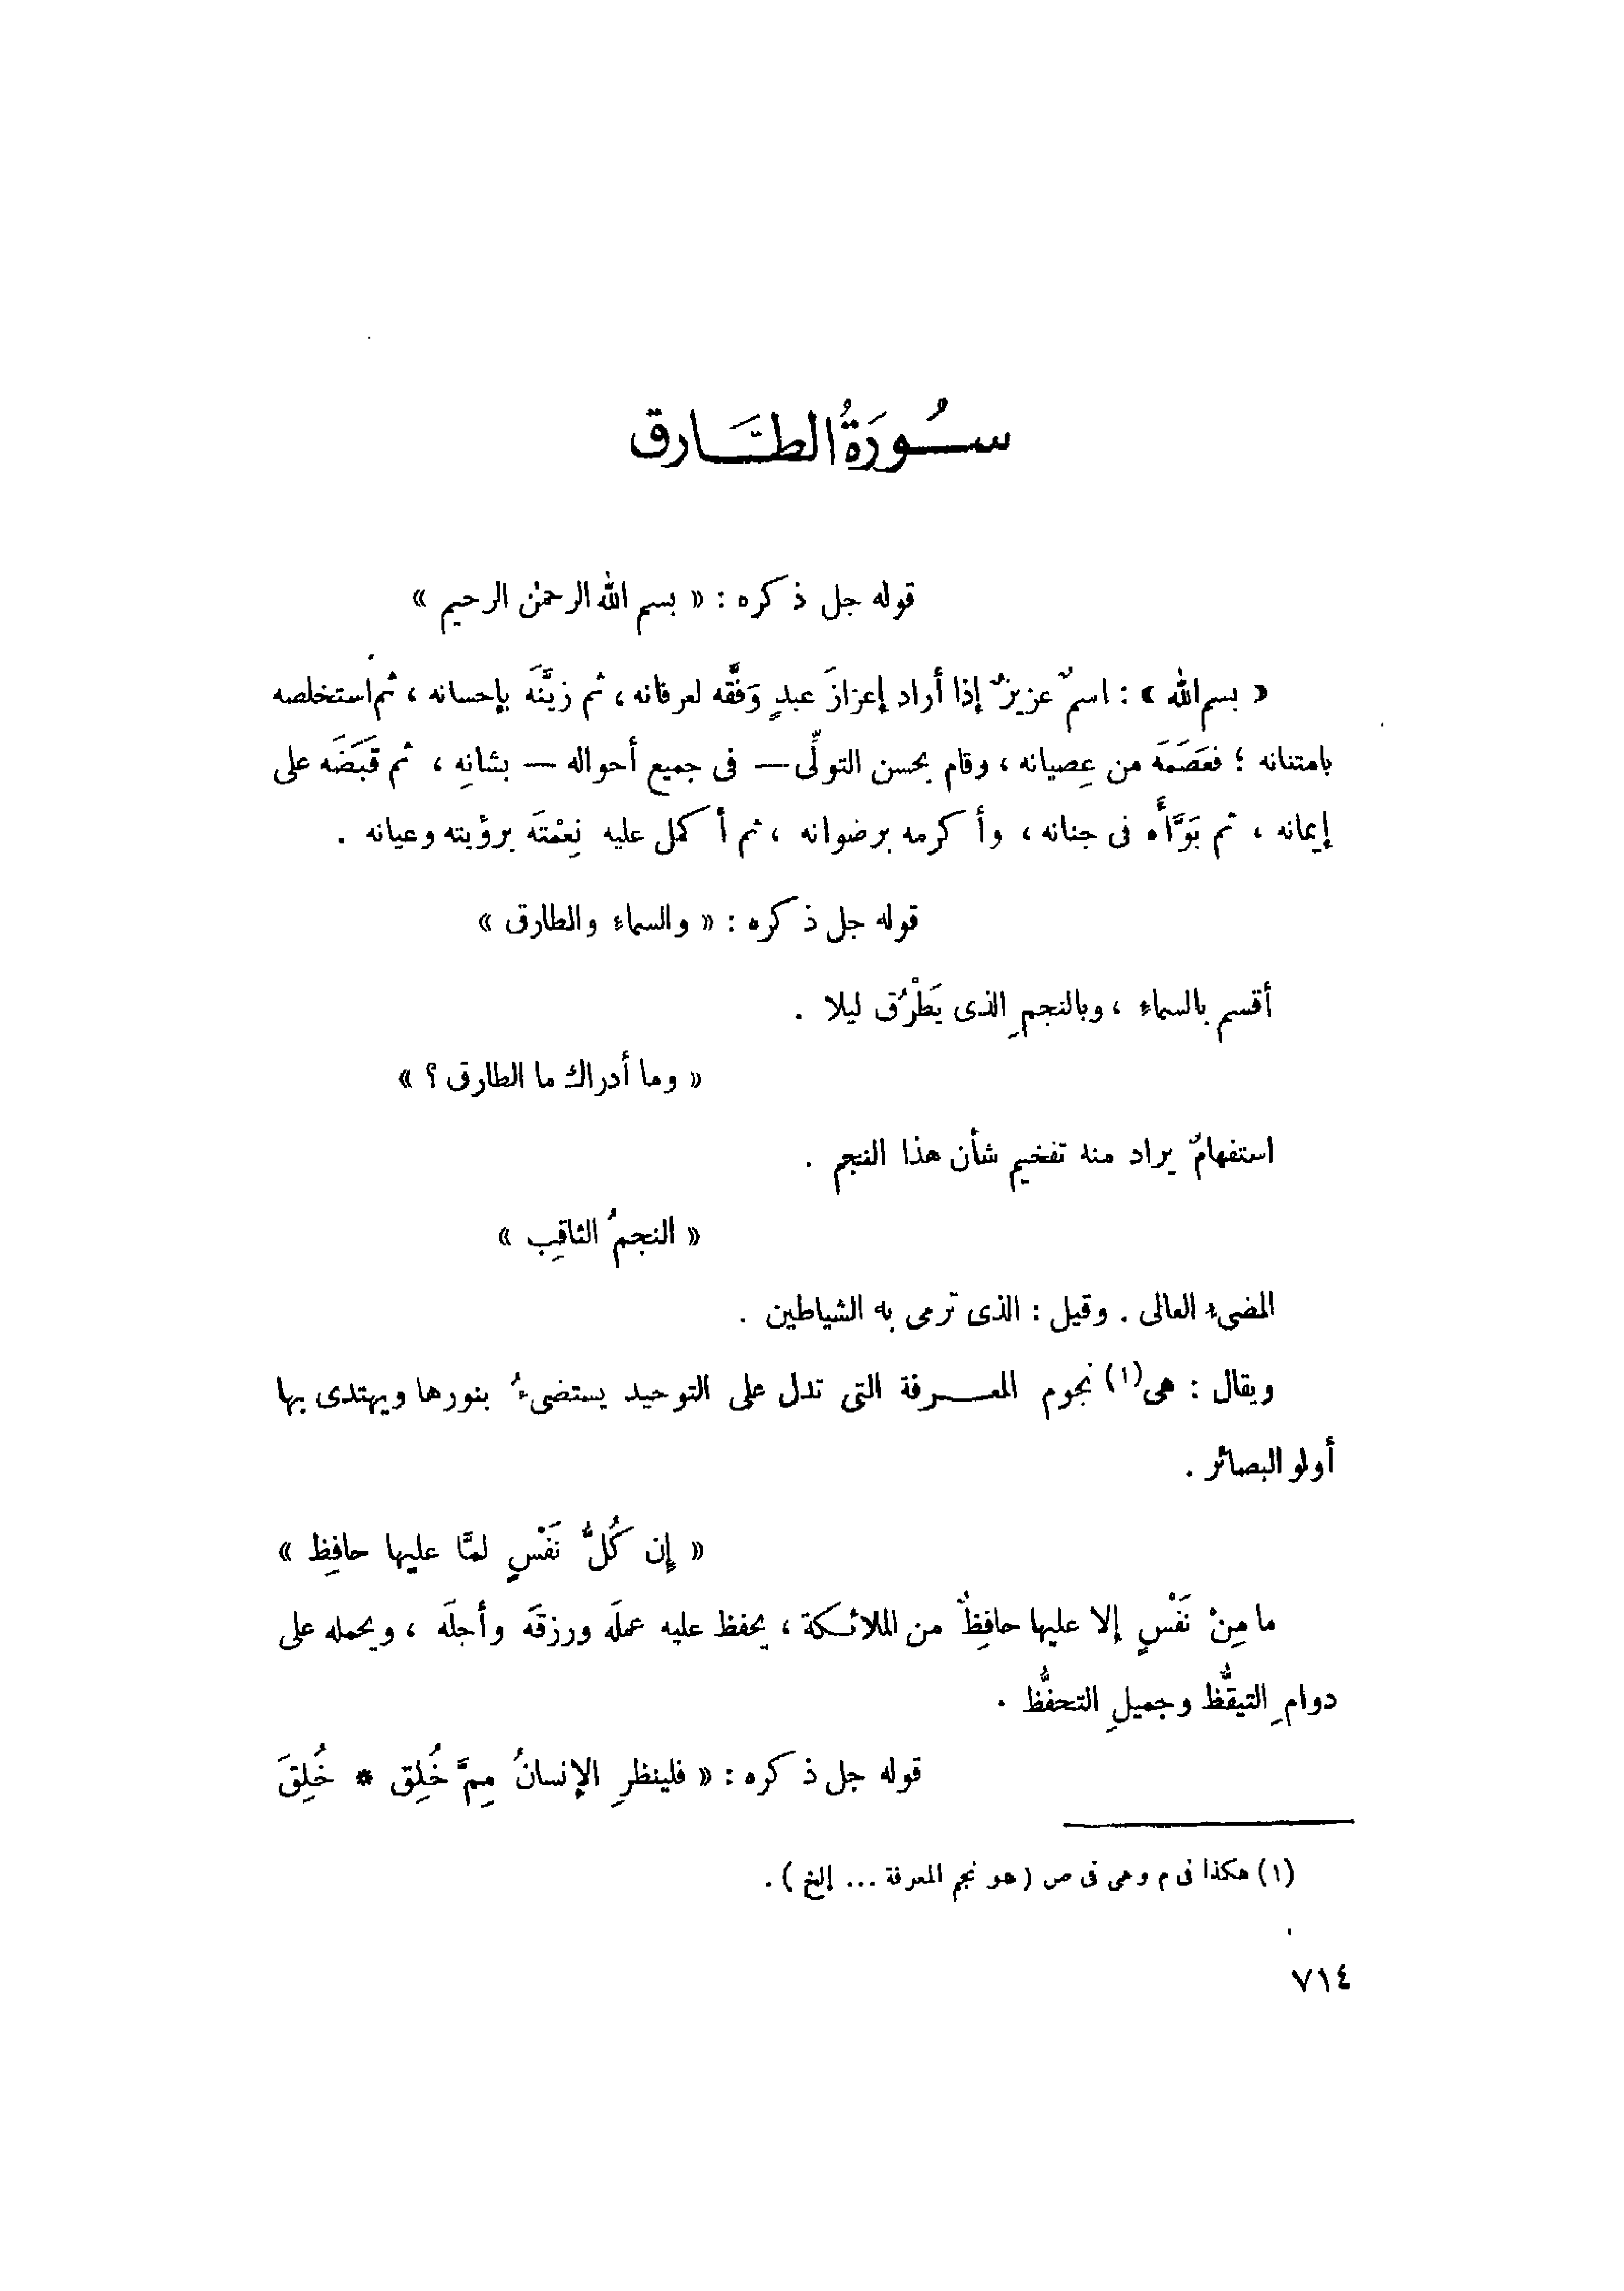 سُورَةُ الطَّارق
قوله جل ذكره : « بسم الله الرحمن الرحيم »
« بسم الله » : اسمٌ عزيزٌ إذا أراد إعزازَ عبدٍ وَفَّقه لعرفانه ، ثم زيَّنَه بإحسانه ، ثم استخلصه
بامتنانه ؛ فعَصَمَه من عِصيانه ، وقام بحسن التولِّى — فى جميع أحواله — بشانِه ، ثم قَبَضَه على
إيمانه ، ثم بَوَّأَه فى جنانه ، وأكرمه برضوانه ، ثم أكمل عليه نِعْمتَه برؤيته وعيانه .
قوله جل ذكره : « والسماء والطارق »
أقسم بالسماءِ ، وبالنجمِ الذى يَطْرُق ليلا .
« وما أدراك ما الطارق ؟ »
استفهامٌ يراد منه تفخيم شأن هذا النجم .
« النجمُ الثاقِب »
المضىء العالى . وقيل : الذى ترمى به الشياطين .
ويقال : هى(١) نجوم المعـرفة التى تدل على التوحيد يستضىءُ بنورها ويهتدى بها
أولو البصائر .
« إِن كُلُّ نَفْسٍ لمَّا عليها حافِظ »
ما مِنْ نَفْسٍ إلا عليها حافِظٌ من الملائكة ، يحفظ عليه عملَه ورزقَه وأجلَه ، ويحمله على
دوامِ التيقُّظ وجميلِ التحفُّظ .
قوله جل ذكره : « فلينظرِ الإنسانُ مِمَّ خُلِق * خُلِقَ
(١) هكذا فى م وهى فى ص ( هو نجم المعرفة ... إلخ ) .
٧١٤